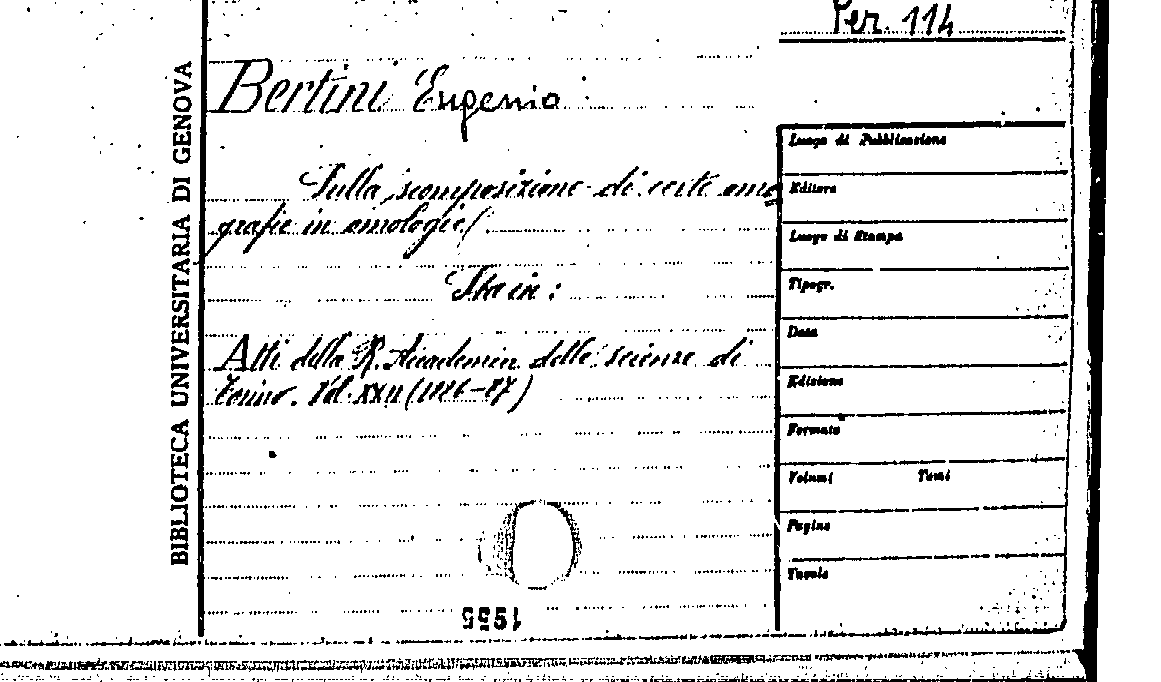 Per. 114
BIBLIOTECA UNIVERSITARIA DI GENOVA
Bertini Eugenio
Sulla scomposizione di certe omo
grafie in omologie/
Sta in:
Atti della R. Accademia delle scienze di
Torino. Vol. XXII (1886-87)
Luogo di Pubblicazione
Editore
Luogo di Stampa
Tipogr.
Data
Edizione
Formato
Volumi Tomi
Pagine
Tavole
1955